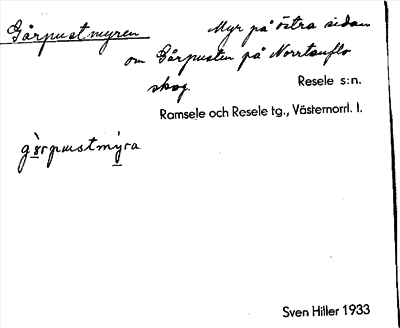 Gårpustmyren
Myr på östra sidan
om Gårpusten på Norrtanflo
skog.
Resele s:n.
Ramsele och Resele tg., Västernorrl. l.
Sven Hiller 1933